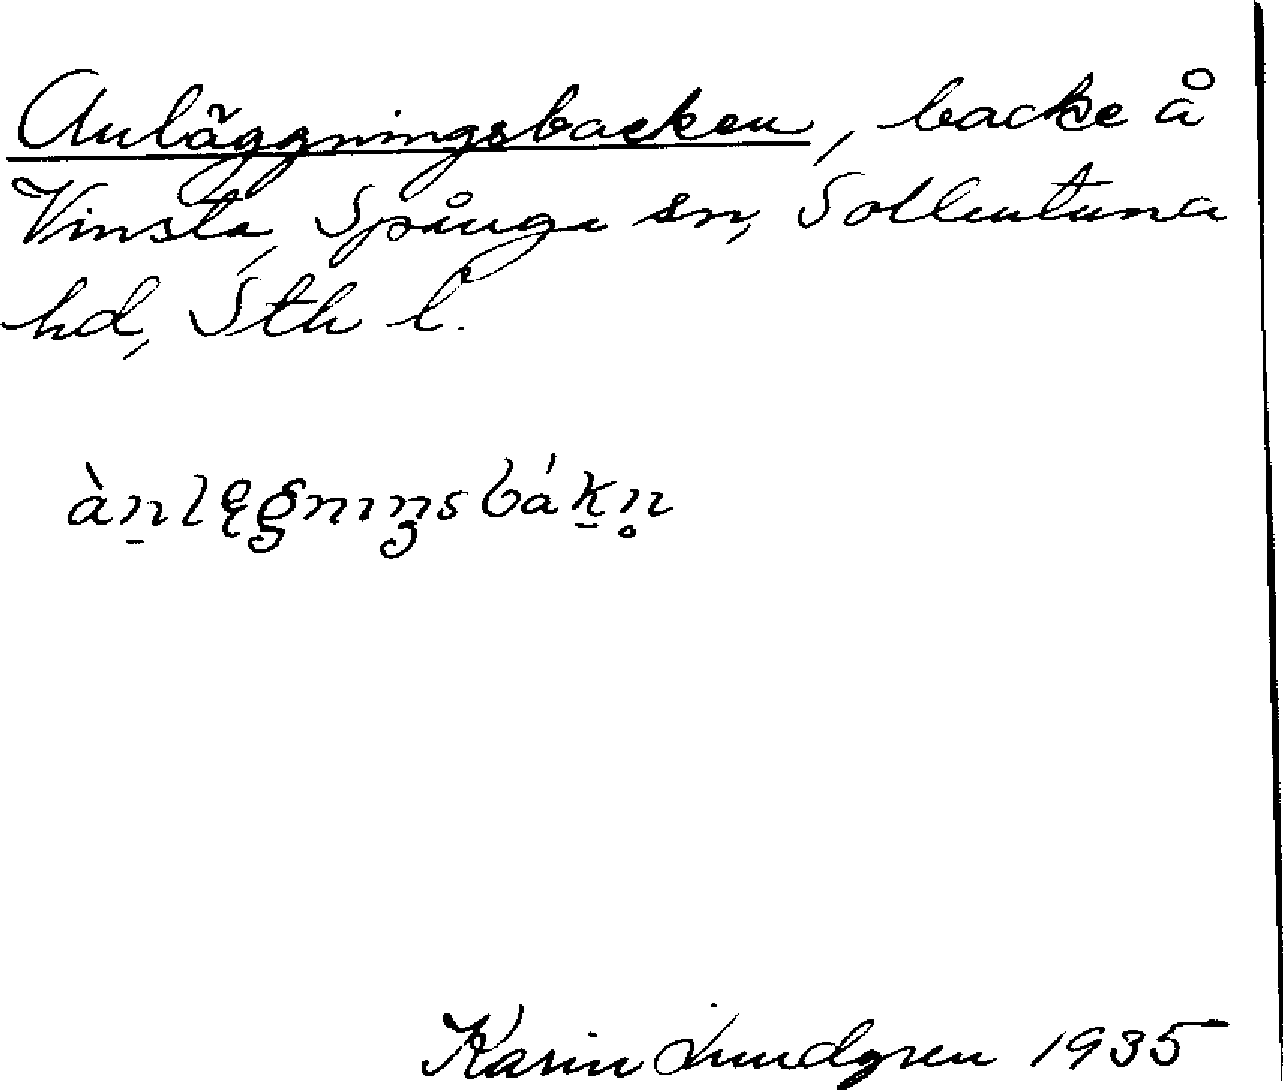 Anläggningsbacken, backe å
Vinsta, Spånga sn, Sollentuna
hd, Sth l.
àn̠lęgnıŋsbák̠n̥
Karin Lundgren 1935